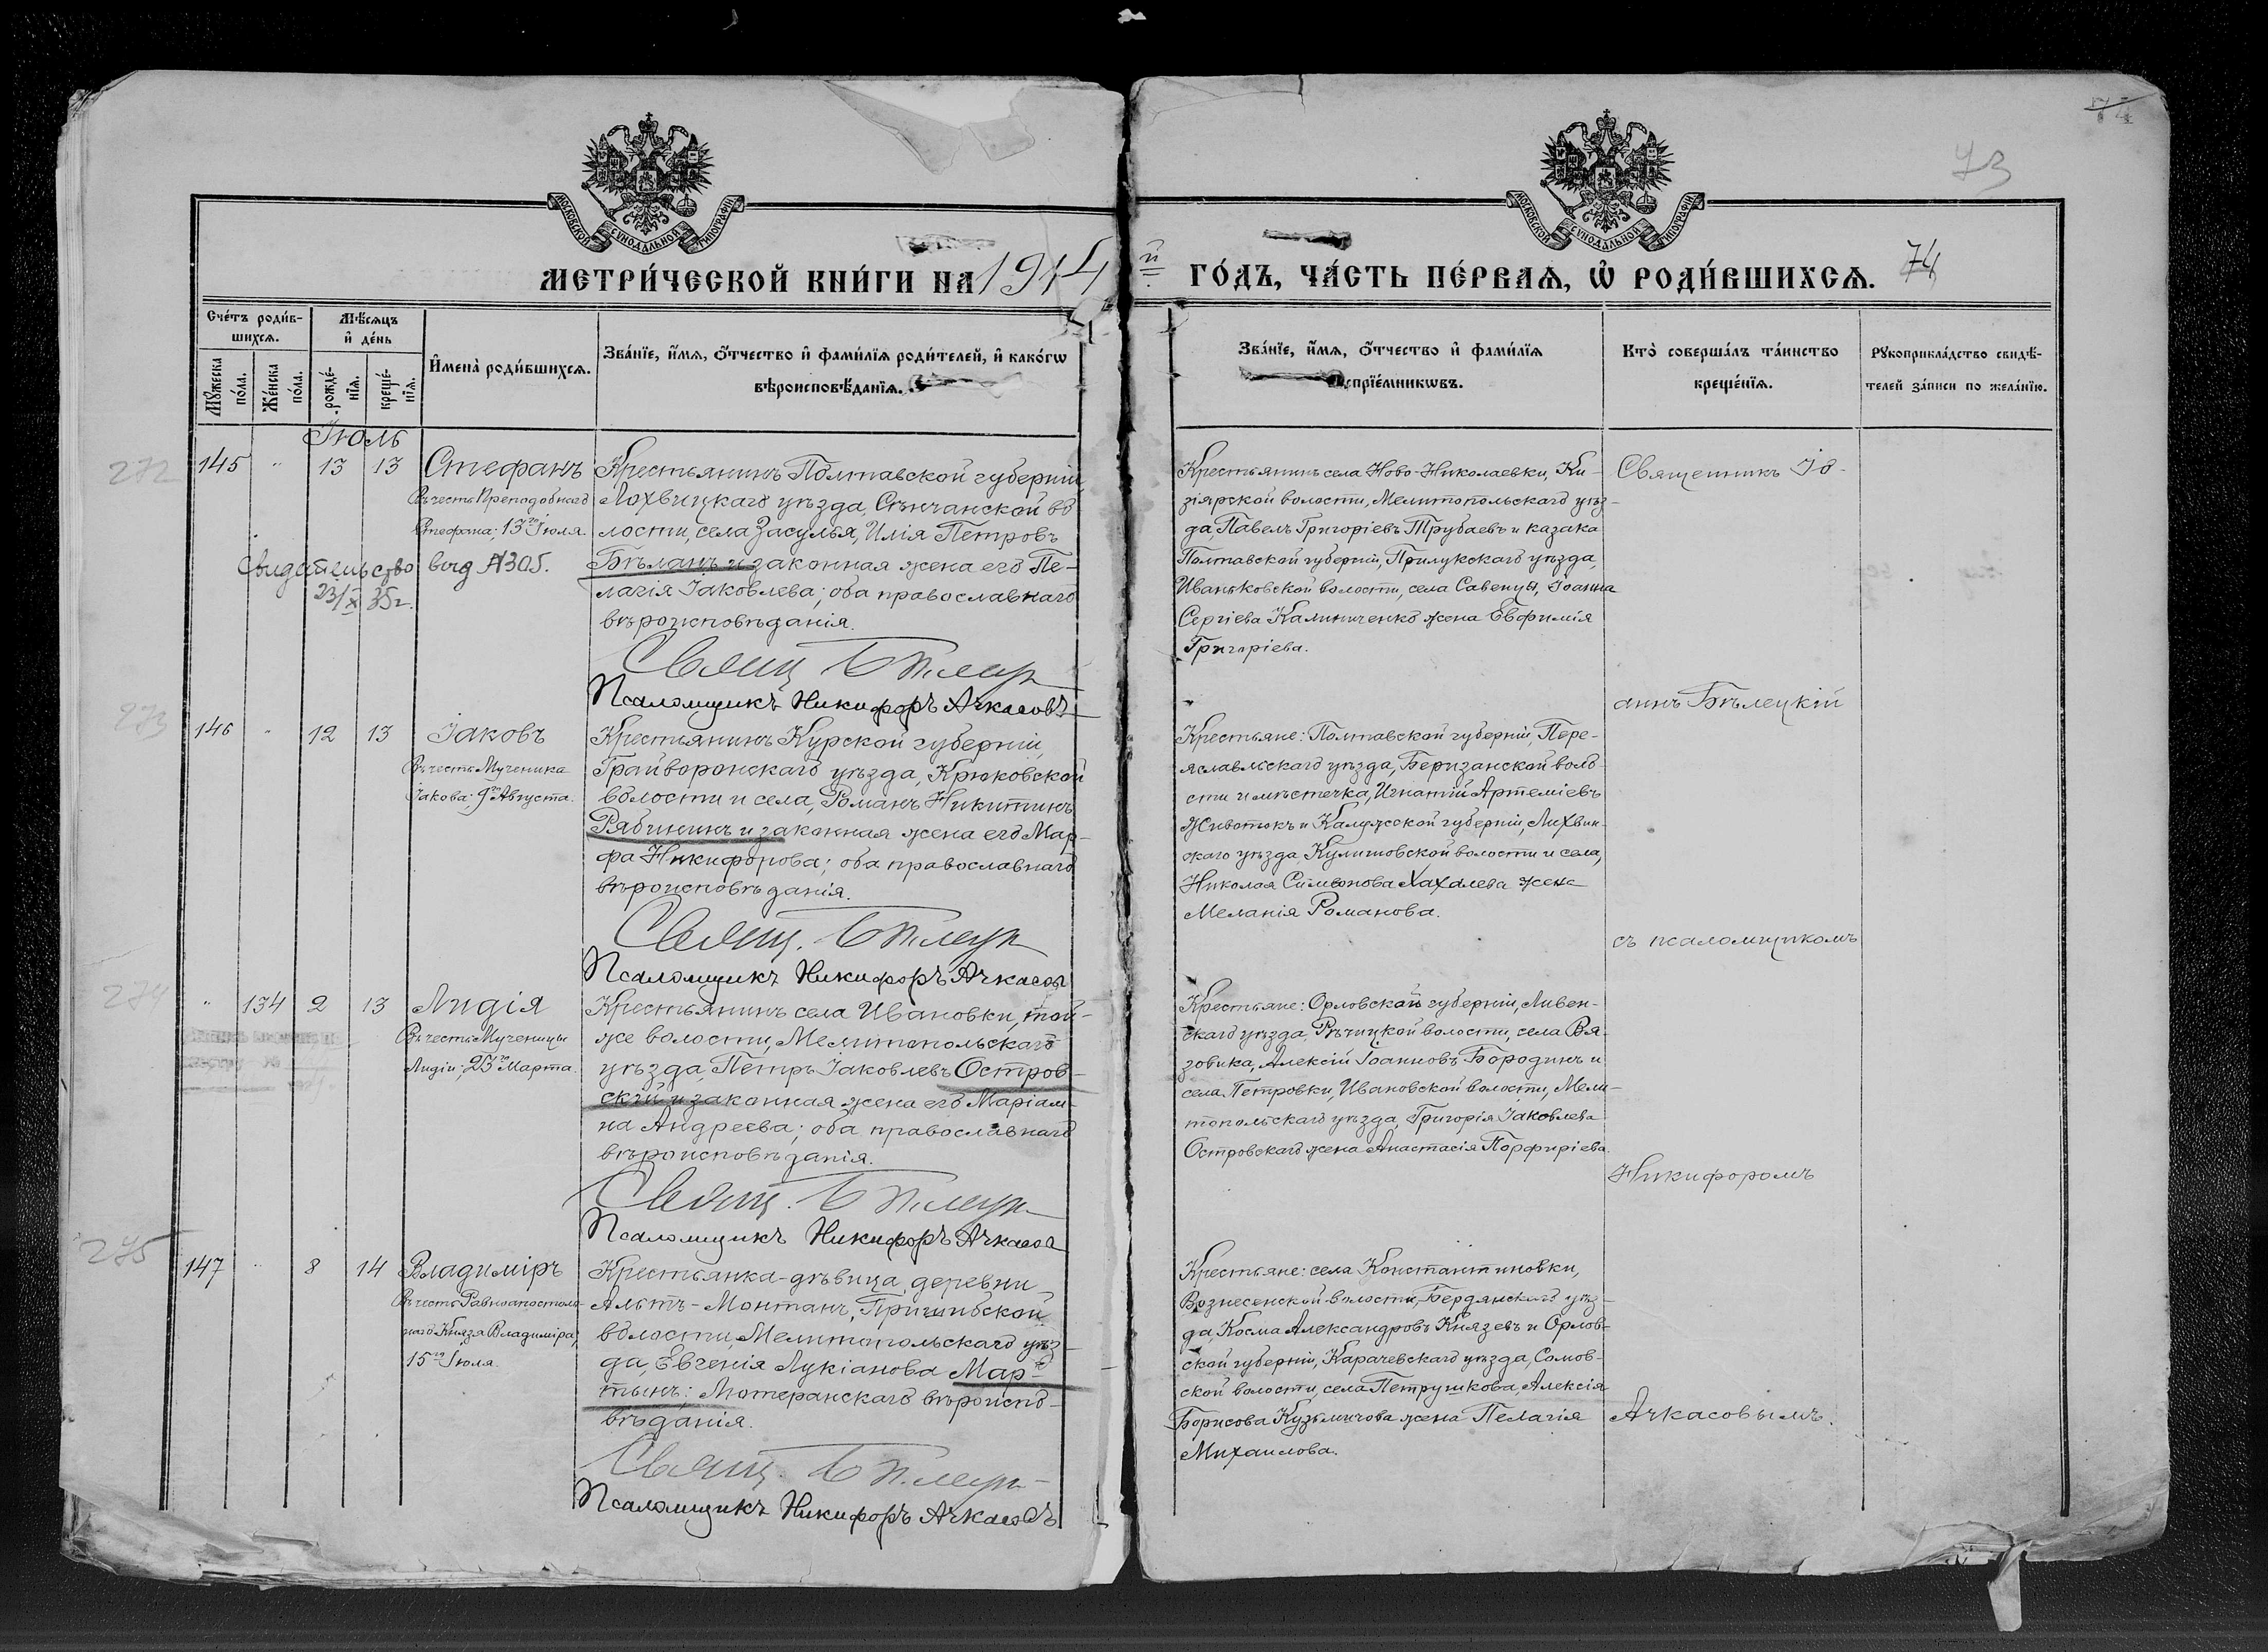 74
73
МОСКОВСКОЙ СѴНОДАЛЬНОЙ ТИПОГРАФІИ
МОСКОВСКОЙ СѴНОДАЛЬНОЙ ТИПОГРАФІИ
МЕТРИ́ЧЕСКОЙ КНИ́ГИ НА 1914
й ГО́ДЪ, ЧА́СТЬ ПЕ́РВАѦ, Ѡ҆ РОДИ́ВШИХСѦ. 74
Сче́тъ роди́в-
шихсѧ.
Мꙋ́жеска по́ла.
Же́нска по́ла.
Мѣ́сѧцъ
и҆ де́нь
рожде́-
нїѧ.
креще́-
нїѧ.
И҆мена̀ роди́вшихсѧ.
Зва́нїе, и҆́мѧ, ѻ҆́тчество и҆ фами́лїѧ роди́телей, и҆ како́гѡ
вѣроисповѣ́данїѧ.
Зва́нїе, и҆́мѧ, ѻ҆́тчество и҆ фами́лїѧ
спрїе́мникѡвъ.
Кто̀ соверша́лъ та́инство
креще́нїѧ.
Рꙋкоприкла́дство свидѣ́-
телей за́писи по жела́нїю.
Іюль
272
145 " 13 13
Стефанъ
Въ честь Преподобнаго
Стефана; 13го Іюля.
Свидетельство выд №305.
23/X 35г.
Крестьянинъ Полтавской губерніи,
Лохвицкаго уѣзда, Сѣнчанской во
лости, села Засулья, Илія Петровъ
Бѣланъ и законная жена его Пе-
лагія Іаковлева; оба православнаго
вѣроисповѣданія.
Свящ Бѣлецк
Псаломщикъ Никифоръ Ачкасовъ
Крестьянинъ села Ново-Николаевки, Ки-
зіярской волости, Мелитопольскаго уѣз-
да, Павелъ Григоріевъ Трубаевъ и казака
Полтавской губерніи, Прилукскаго уѣзда,
Иваньковской волости, села Савенцы, Іоанна
Сергіева Калиниченко жена Евфимія
Григоріева.
Священникъ Іо-
аннъ Бѣлецкій
съ псаломщикомъ
Никифоромъ
Ачкасовымъ.
273
146 " 12 13
Іаковъ
Въ честь Мученика
Іакова; 9го Августа.
Крестьянинъ Курской губерніи,
Грайворонскаго уѣзда, Крюковской
волости и села, Романъ Никитинъ
Рябининъ и законная жена его Мар-
фа Никифорова; оба православнаго
вѣроисповѣданія.
Свящ. Бѣлецк
Псаломщикъ Никифоръ Ачкасовъ
Крестьяне: Полтавской губерніи, Пере-
яславльскаго уѣзда, Беризанской воло
сти и мѣстечка, Игнатій Артеміевъ
Животокъ и Калужской губерніи, Лихвин-
скаго уѣзда, Кулишовской волости и села,
Николая Симеонова Хахалева жена
Меланія Романова.
274
" 134 2 13
Лидія
Въ честь Мученицы
Лидіи; 23го Марта.
Крестьянинъ села Ивановки, той-
же волости, Мелитопольскаго
уѣзда, Петръ Іаковлевъ Остров-
скій и законная жена его Маріам-
на Андреева; оба православнаго
вѣроисповѣданія.
Свящ. Бѣлецк
Псаломщикъ Никифоръ Ачкасов
Крестьяне: Орловской губерніи, Ливен-
скаго уѣзда, Рѣчицкой волости, села Вя-
зовика, Алексій Іоанновъ Бородинъ и
села Петровки, Ивановской волости, Мели-
топольскаго уѣзда, Григорія Іаковлева
Островскаго жена Анастасія Порфиріева.
275
147 " 8 14
Владиміръ
Въ честь Равноапостоль-
наго Князя Владиміра;
15го Іюля.
Крестьянка-дѣвица, деревни
Альтъ-Монтанъ, Пришибской
волости, Мелитопольскаго уѣз-
да, Евгенія Лукіанова Мар-
тынъ: Лютеранскаго вѣроиспо-
вѣданія.
Свящ. Бѣлецк
Псаломщикъ Никифоръ Ачкасовъ
Крестьяне: села Константиновки,
Вознесенской волости, Бердянскаго уѣз-
да, Косма Александровъ Князевъ и Орлов-
ской губерніи, Карачевскаго уѣзда, Сомов-
ской волости, села Петрушкова, Алексія
Борисова Кузьмичова жена Пелагія
Михаилова.